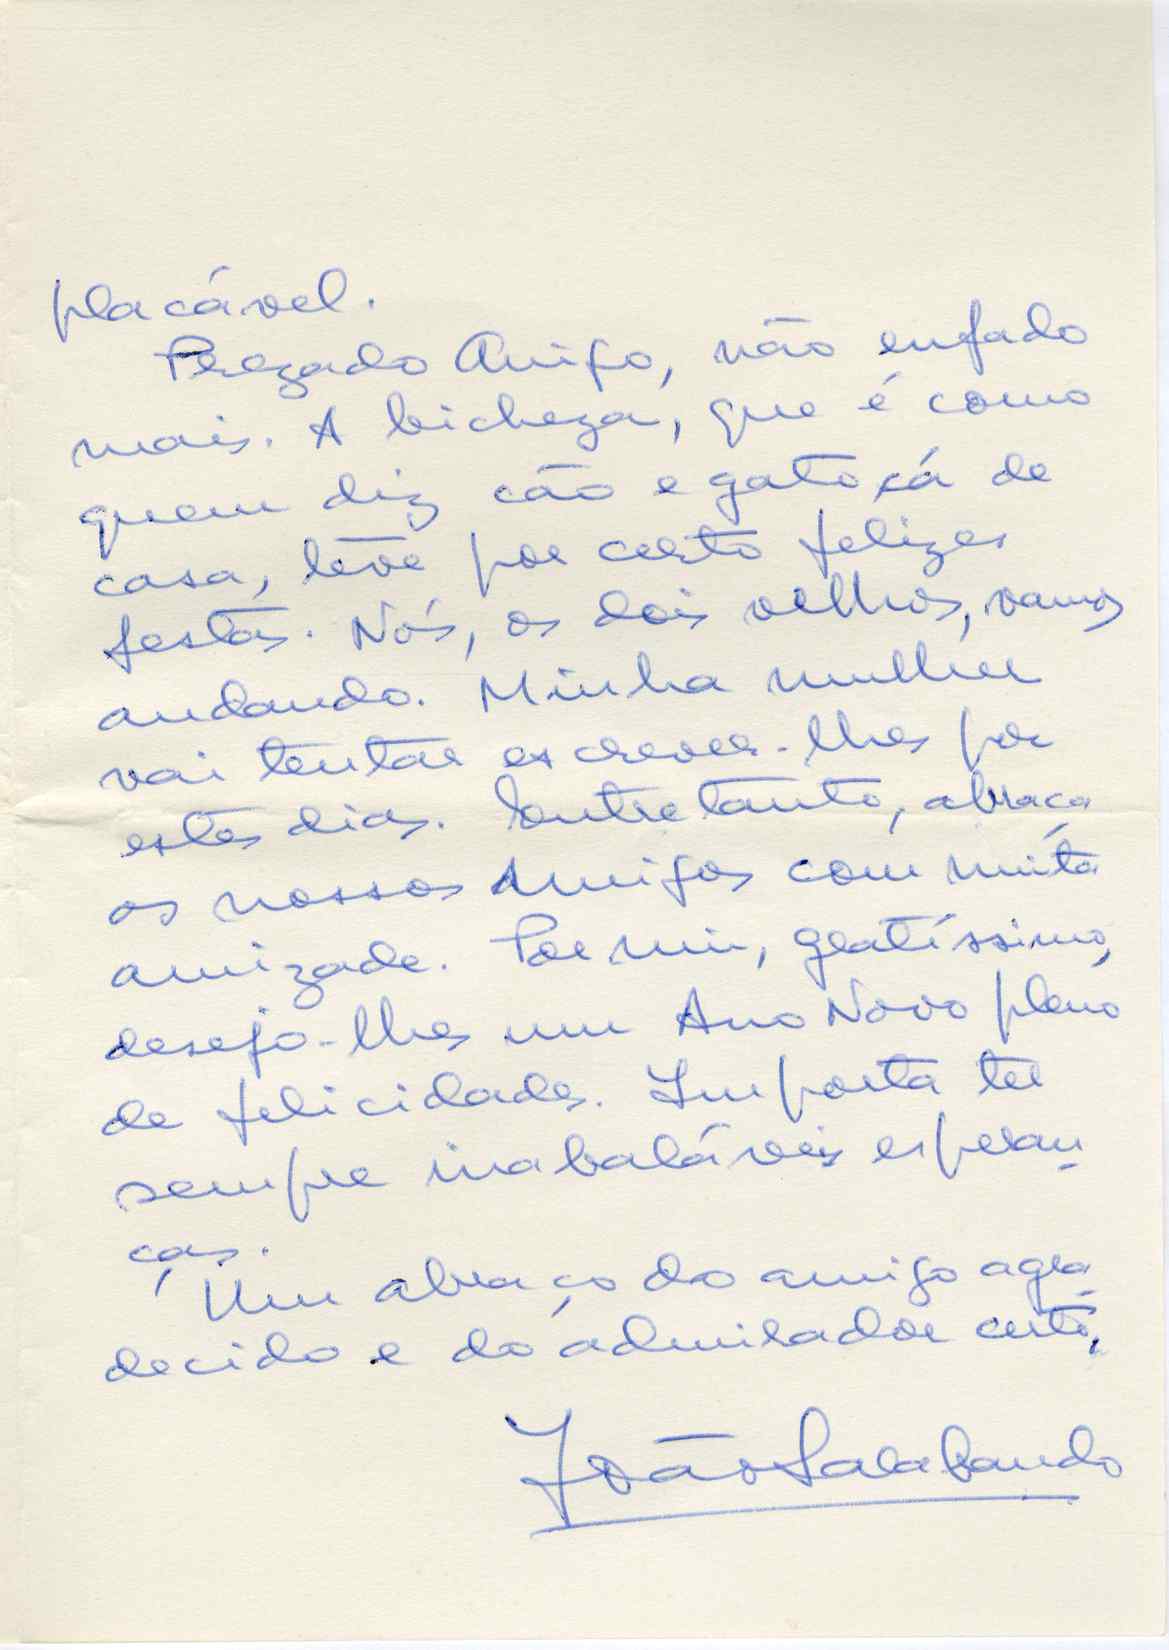 placável.
Prezado Amigo, não enfado
mais. A bicheza, que é como
quem diz cão e gato cá de
casa, teve por certo felizes
festas. Nós, os dois velhos, vamos
andando. Minha mulher
vai tentar escrever-lhes por
estes dias. Entretanto, abraça
os nossos Amigos com muita
amizade. Por mim, gratíssimo,
desejo-lhes um Ano Novo pleno
de felicidades. Importa ter
sempre inabaláveis esperan
ças.
Um abraço do amigo agra
decido e do admirador certo,
João Sarabando